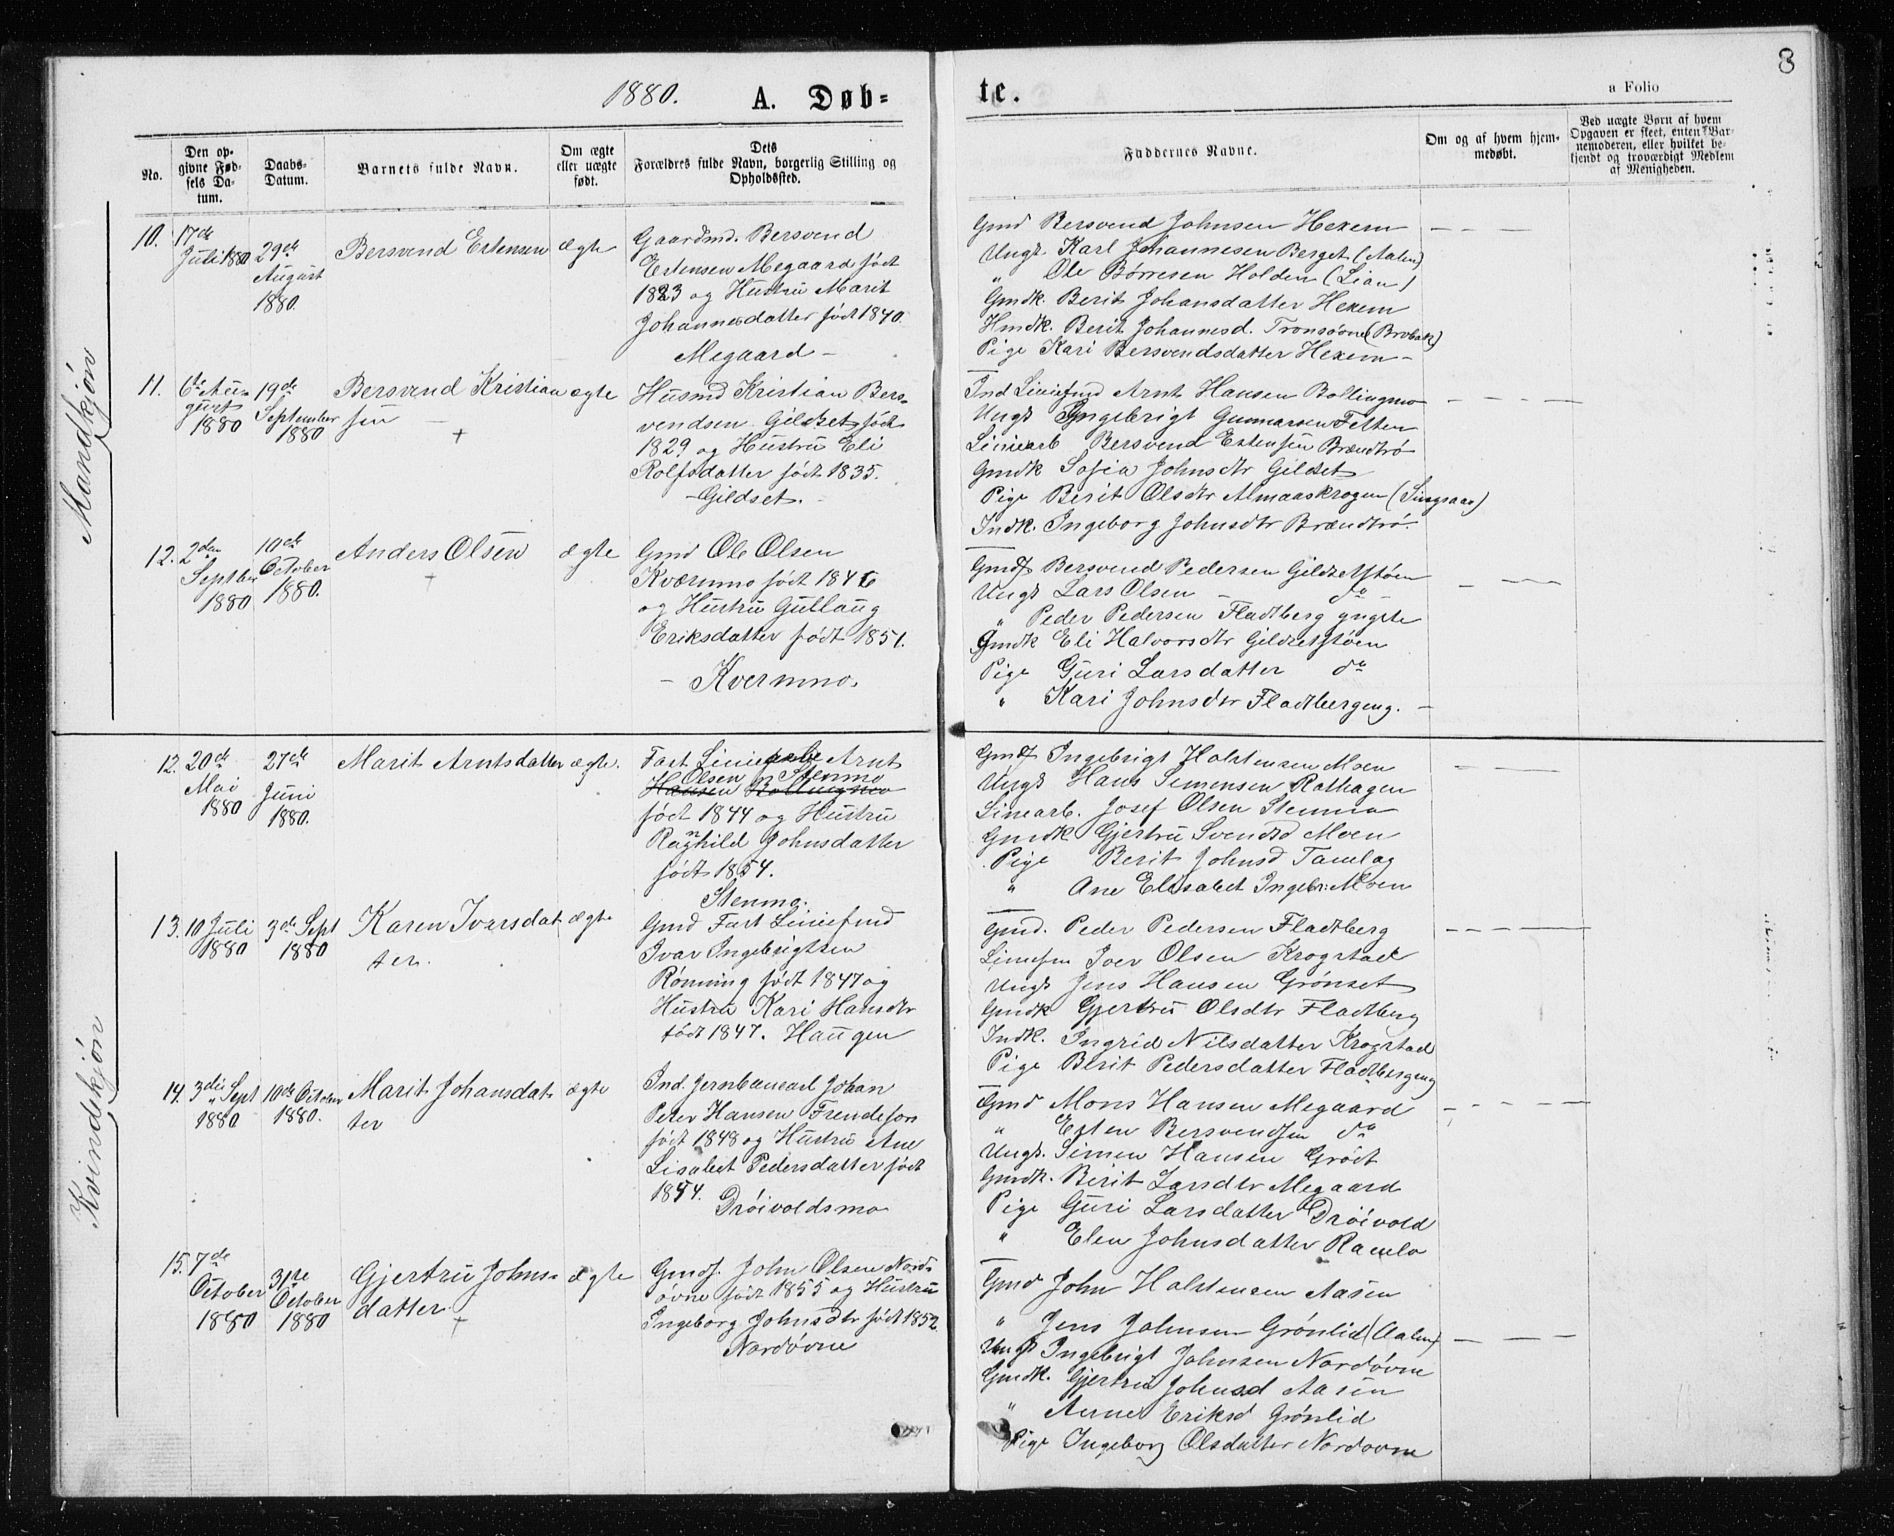 1880.
A. Døb=
te.
8
a Folio
No.
Den op-
givne Fød-
sels Da-
tum.
Daabs-
Datum.
Barnets fulde Navn.
Om ægte
eller uægte
født.
Dets
Forældres fulde Navn, borgerlig Stilling og
Opholdssted.
Faddernes Navne.
Om og af hvem hjem-
medøbt.
Ved uægte Børn af hvem
Opgaven er skeet, enten Bar-
nemoderen, eller hvilket be-
kjendt og troværdigt Medlem
af Menigheden.
Mandkjøn
10.
17de
Juli 1880
29de
August
1880.
Bersvend Estensen
ægte
Gaardmd. Bersvend
Estensen Megaard født
1823 og Hustru Marit
Johannesdatter født 1840.
Megaard -
Gmd Bersvend Johnsen Hexem
Ungk. Karl Johannesen Berget (Aalen)
" Ole Børresen Holden (Lian)
Gmdk. Berit Johansdatter Hexem
Hmdk. Berit Johannesd. Tronsøvne (Brobak)
Pige Kari Bersvendsdatter Hexem -
11.
6te Au=
gust
1880
19de
September
1880
Bersvend Kristian
sen -
+
ægte
Husmd Kristian Bers=
vendsen Gildset født
1829 og Hustru Eli
Rolfsdatter født 1835.
- Gildset. -
Ind Liniefmd Arnt Hansen Bollingmo
Ungk Ingebrigt Gunnarsen Tetten
Liniearb Bersvend Estensen Brændtrø
Gmdk Sofia Johnsdtr Gildset
Pige Berit Olsdtr Almaaskrogen (Singsaas)
Indk. Ingeborg Johnsdtr Brændtrø.
12.
2den
Septber
1880
10de
October
1880.
Anders Olsen
+
ægte
Gmd Ole Olsen
Kværnmo født 1846
og Hustru Gullaug
Eriksdatter født 1851.
- Kvernmo.
Gmdf Bersvend Pedersen Gildsetstøen
Ungk Lars Olsen - do
" Peder Pedersen Fladtberg yngste
Gmdk Eli Halvorsdtr Gildsetstøen
Pige Guri Larsdatter do
" Kari Johnsdtr Fladtbergeng. -
Kvindekjøn
12.
20de
Mai
1880
27de
Juni
1880.
Marit Arntsdatter
ægte.
Fast Liniearbe Arnt
Olsen Stenmo
Hansen Bollingmo
født 1844 og Hustru
Ragnhild Johnsdatter
født 1854.
Stenmo.
Gmdf Ingebrigt Holstensen Moen
Ungk Hans Simensen Rathagen
Liniearb. Josef Olsen Stenmo
Gmdk Gjertru Svendsd Moen
Pige Berit Johnsd Tamlag
" Ane Elisabet Ingebr: Moen
13.
10 Juli
1880
3de Sept
1880
Karen Ivarsdat
ter.
ægte
Gmd Fast Liniefmd
Ivar Ingebrigtsen
Rønning født 1847 og
Hustru Kari Hansdtr
født 1847. Haugen
Gmd. Peder Pedersen Fladtberg
Liniefm Iver Olsen Krogstad
Ungk Jens Hansen Grønset
Gmdk Gjertru Olsdtr Fladtberg
Indk. Ingrid Nilsdatter Krogstad
Pige Berit Pedersdatter Fladtbergeng
14.
3die Sept
1880
10de October
1880.
Marit Johansdat
ter
ægte
Ind. Jernbanearb Johan
Peter Hansen Frendefors
født 1848 og Hustru Ane
Lisabet Pedersdatter født
1854.
Drøivoldsmo
Gmd Mons Hansen Megaard
" Esten Bersvendsen do
Ungk. Simen Hansen Grøit
Gmdk. Berit Larsdtr Megaard
Pige Guri Larsdatter Drøivold
" Elen Johnsdatter Ramlo
15.
7de
October
1880
31te
October
1880
Gjertru Johns=
datter
+
ægte
Gmdf. John Olsen Nord=
øvne født 1855 og Hustru
Ingeborg Johnsdtr født 1852.
Nordøvne
Gmd John Holstensen Aasen
" Jens Johnsen Grønlid (Aalen)
Ungk Ingebrigt Johnsen Nordøvne
Gmdk. Gjertru Johnsd Aasen
" Anne Eriksd Grønlid
Pige Ingeborg Olsdatter Nordøvne